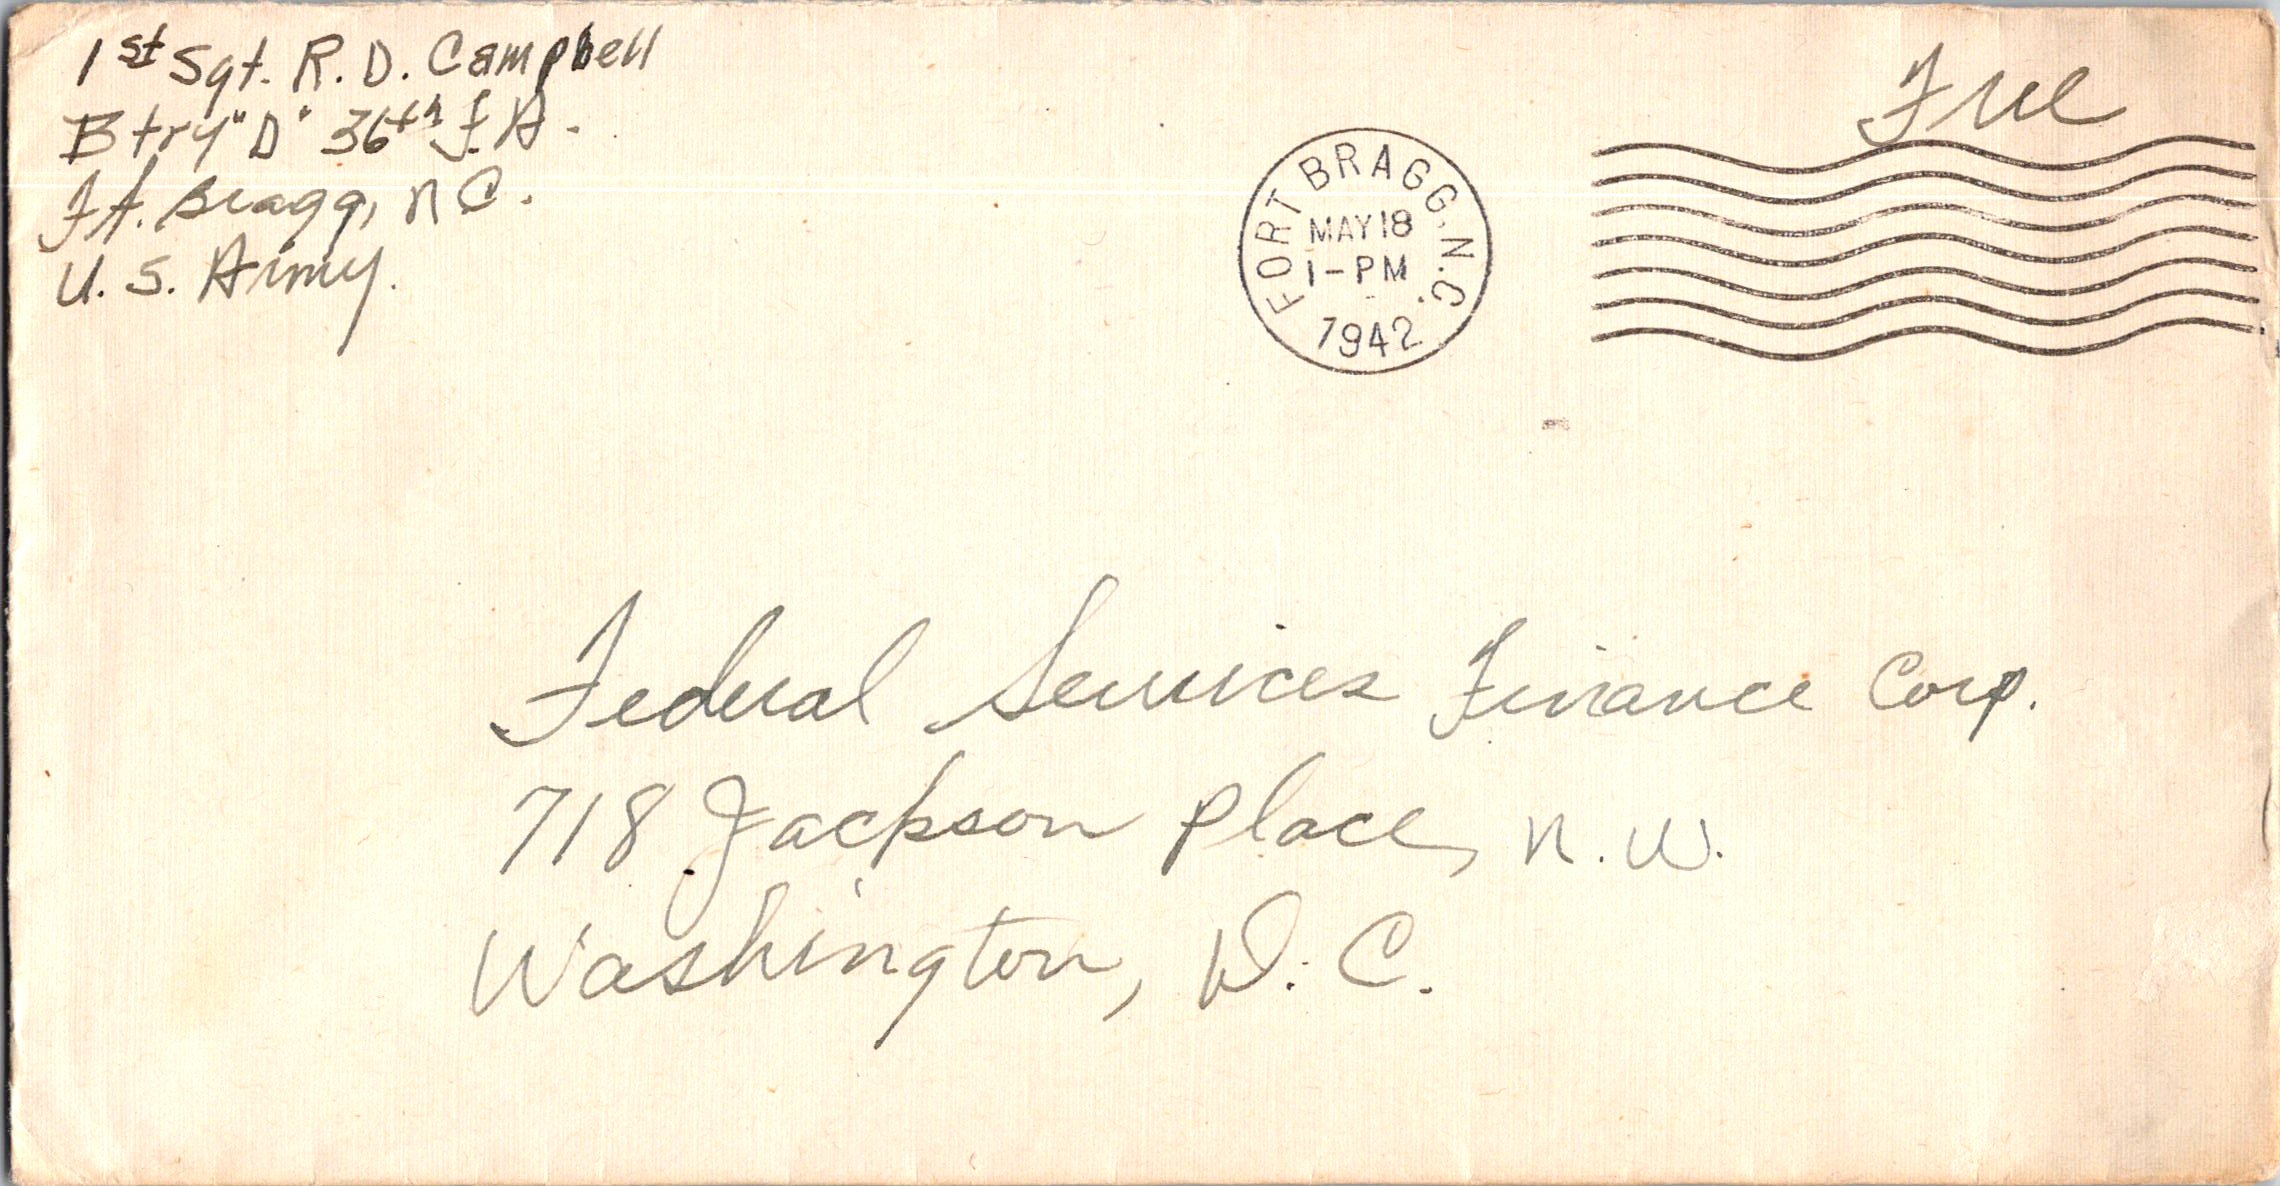 1st Sgt. R. D. Campbell
Btry "D" 36th F.A.
Ft. Bragg, N C.
U. S. Army.
Free
FORT BRAGG, N.C.
MAY 18
1-PM
1942
Federal Services Finance Corp.
718 Jackson Place, N. W.
Washington, D. C.